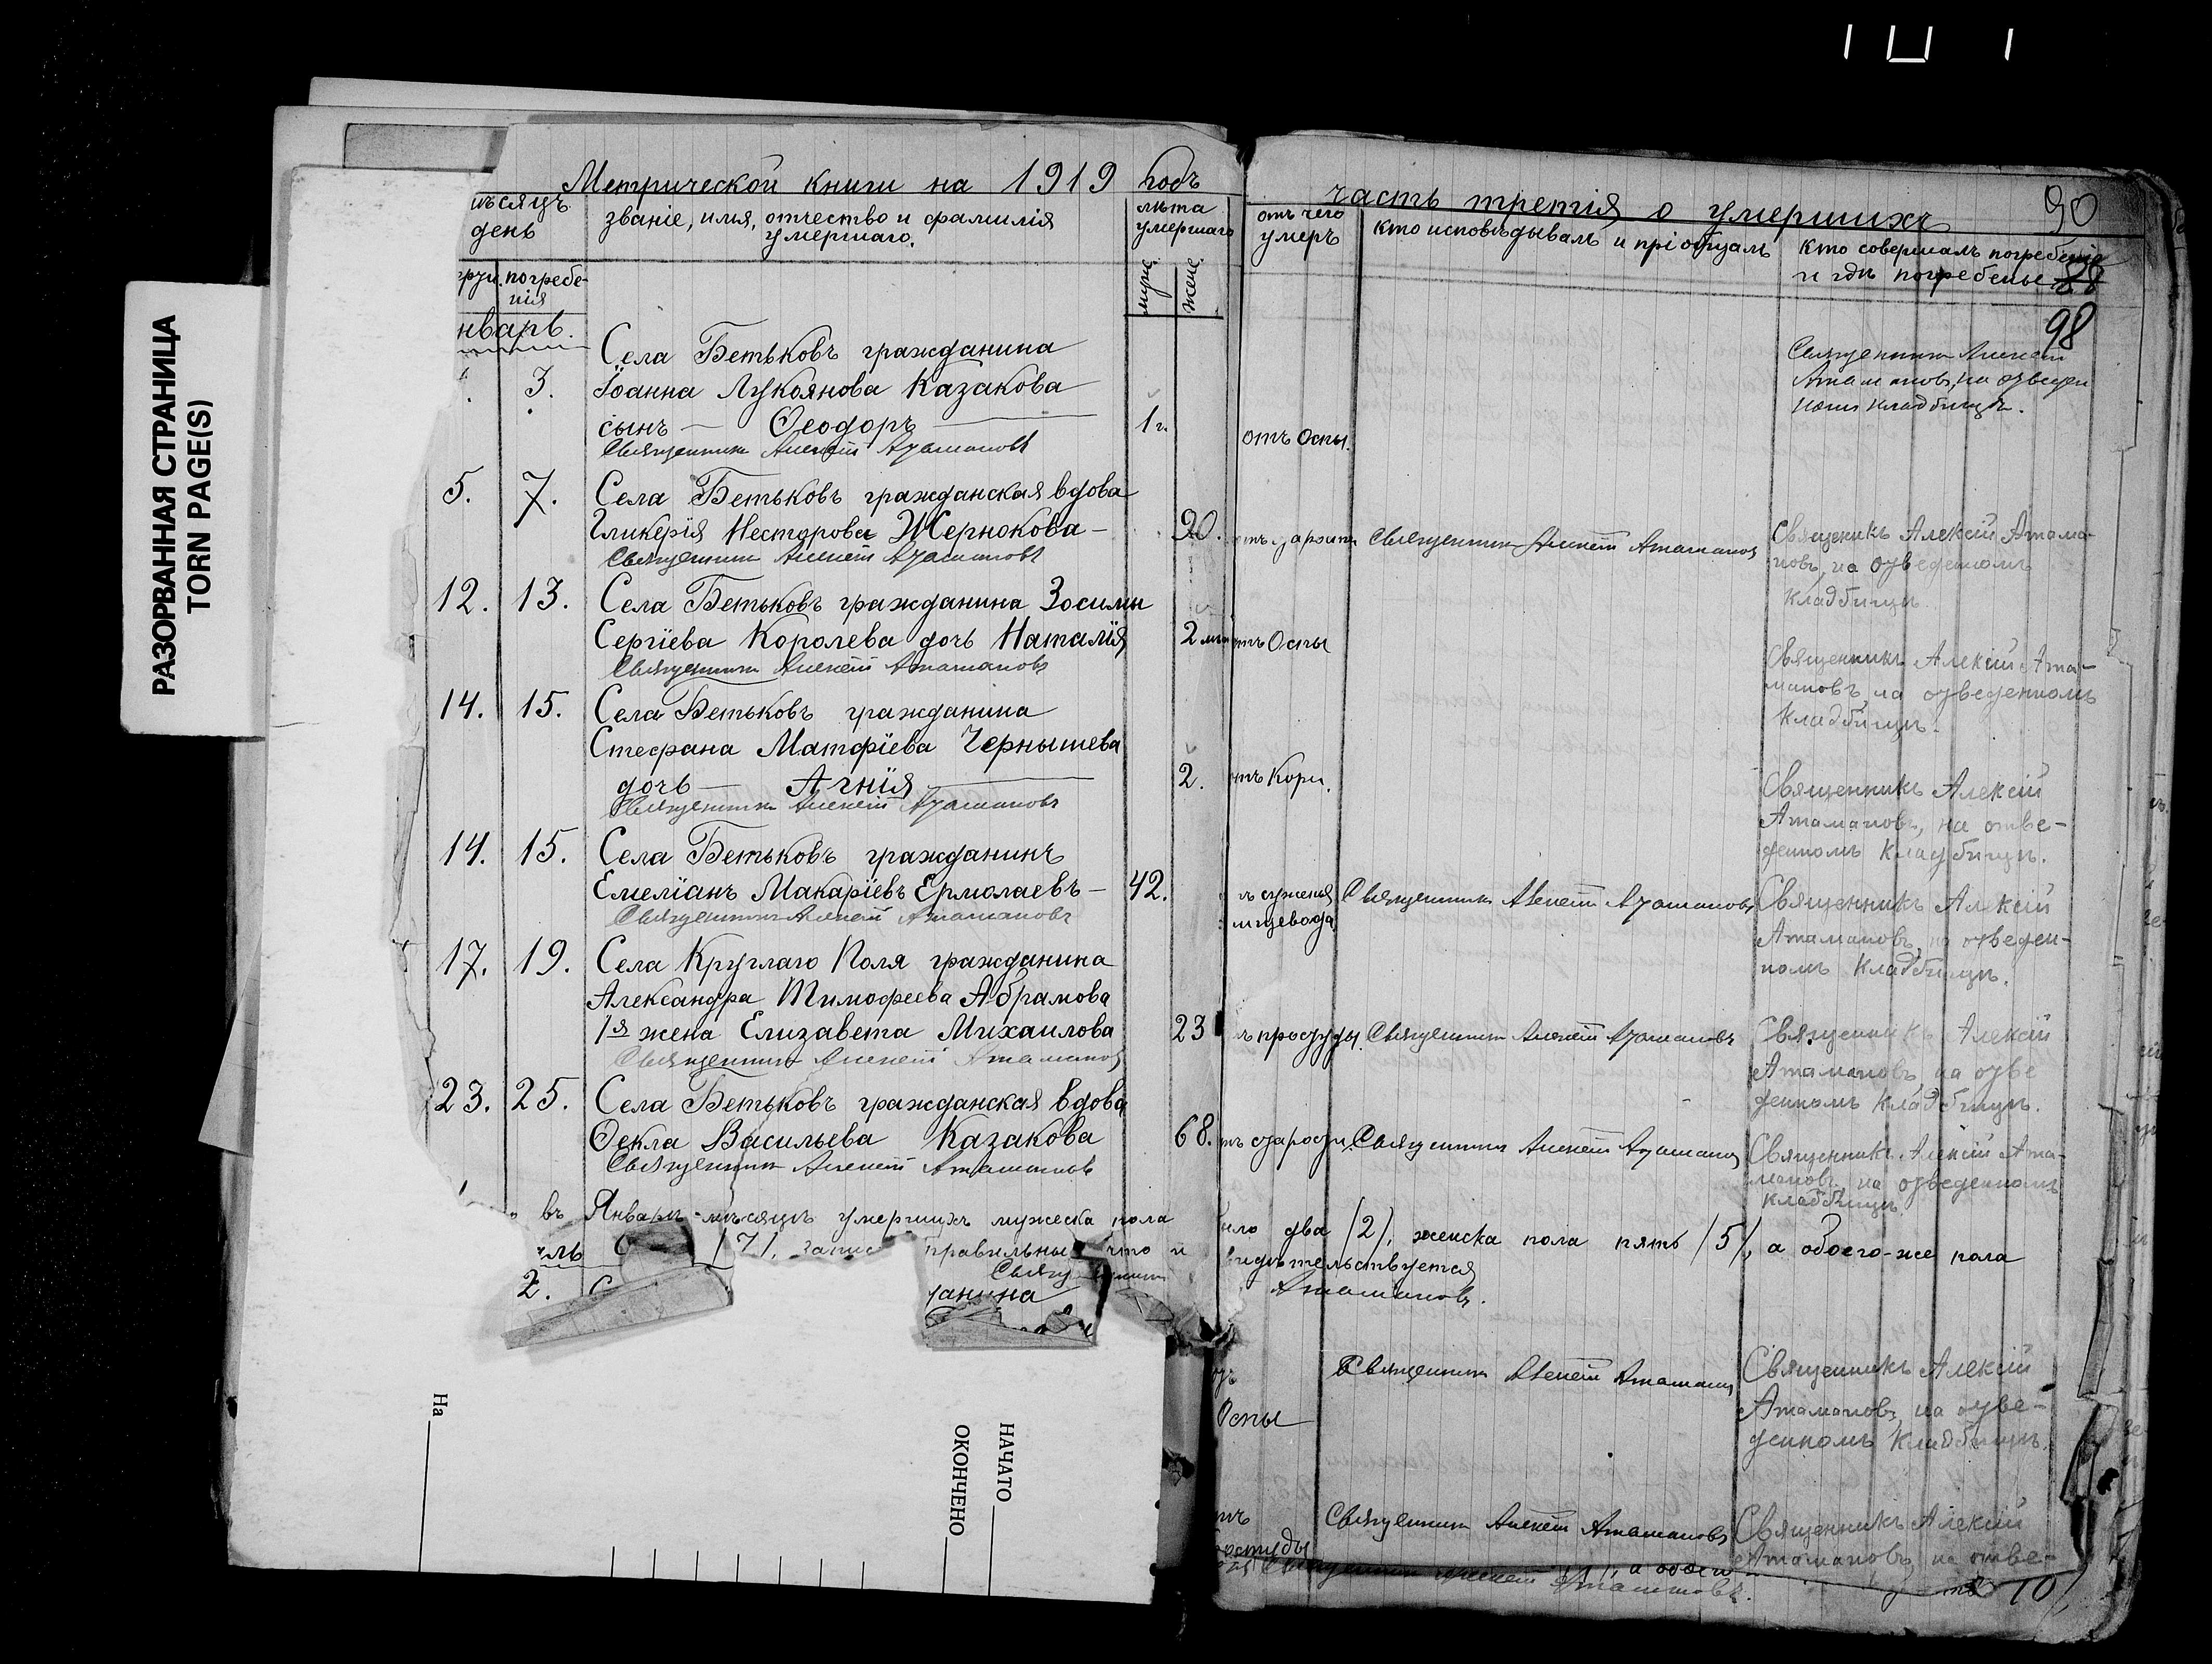 РАЗОРВАННАЯ СТРАНИЦА
TORN PAGE(S)
Метрической книги на 1919 годъ
мѣсяцъ
день
званіе, имя, отчество и фамилія
умершаго.
лѣта
умершаго
погребе-
нія
муже
жене
нварь.
3.
Села Бетьковъ гражданина
Іоанна Лукоянова Казакова
сынъ — Ѳеодоръ
1 г.
Священникъ Алексій Атамановъ
5. 7.
Села Бетьковъ гражданская вдова
Гликерія Несторова Жернокова – 90.
Священникъ Алексій Атамановъ
12. 13.
Села Бетьковъ гражданина Зосимы
Сергіева Королева дочь Наталія 2
Священникъ Алексій Атамановъ
14. 15.
Села Бетьковъ гражданина
Стефана Матфіева Чернышева
дочь — Агнія 2.
Священникъ Алексій Атамановъ
14. 15.
Села Бетьковъ гражданинъ
Емеліанъ Макаріевъ Ермолаевъ – 42.
Священникъ Алексій Атамановъ
17. 19.
Села Круглаго Поля гражданина
Александра Тимофеева Абрамова
1я жена Елизавета Михаилова 23
Священникъ Алексій Атамановъ
23. 25.
Села Бетьковъ гражданская вдова
Ѳекла Васильева Казакова 68.
Священникъ Алексій Атамановъ
въ Январѣ-мѣсяцѣ умершихъ мужеска пола
/7/. правильны что и
2.
анина
На
НАЧАТО
ОКОНЧЕНО
часть третія о умершихъ
90
отъ чего
умеръ
кто исповѣдывалъ и пріобщалъ
кто совершалъ погребеніе
и гдѣ погребены
88
98
Священникъ Алексій
Атамановъ, на отведен
номъ кладбищѣ.
отъ Оспы.
Священникъ Алексій Атамановъ
Священикъ Алексій Атама-
новъ, на отведенномъ
кладбищѣ.
отъ Оспы
Священникъ Алексій Ата-
мановъ, на отведенномъ
кладбищѣ.
отъ Кори.
Священникъ Алексій
Атамановъ, на отве-
денномъ кладбищѣ.
Священникъ Алексій Атамановъ
Священникъ Алексій
Атамановъ, на отведен-
номъ кладбищѣ.
ъ простуды.
Священникъ Алексій Атамановъ
Священникъ Алексій
Атамановъ, на отве
денномъ кладбищѣ.
тъ старости.
Священникъ Алексій Атамановъ
Священникъ Алексій Ата-
мановъ, на отведенномъ
кладбищѣ.
было два /2/, женска пола пять /5/, а обоего-же пола
свидѣтельствуется
Атамановъ.
Оспы
Священникъ Алексій Атамановъ
Священникъ Алексій
Атамановъ, на отве-
денномъ кладбищѣ.
простуды
Священникъ Алексій Атамановъ
Священникъ Алексій
Атамановъ, на отве-
Священникъ Алексій Атамановъ.
10